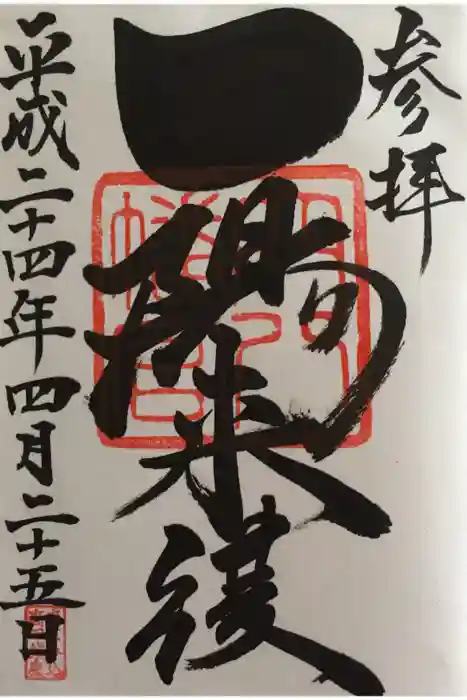 参拝
一陽来復
平成二十四年四月二十五日